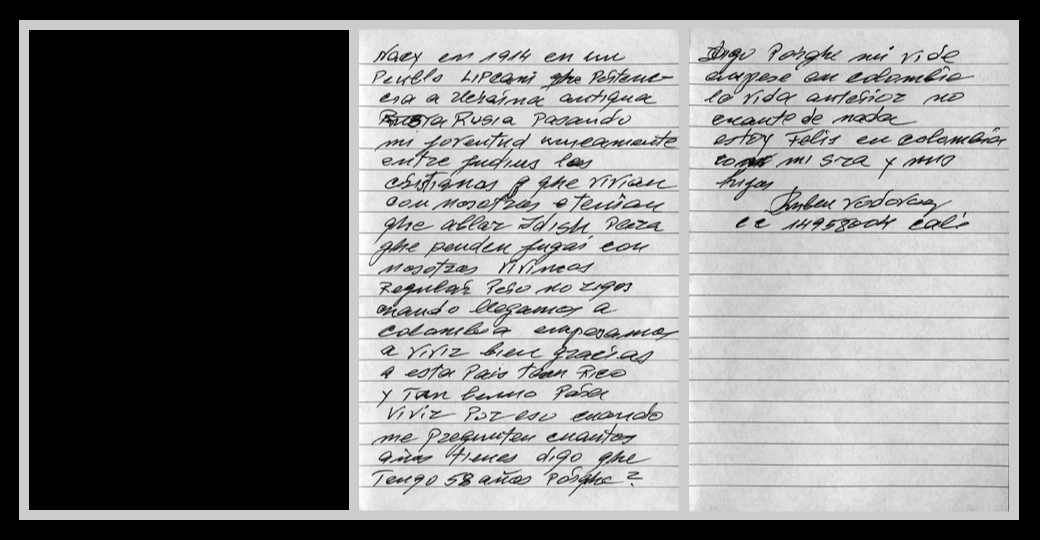 Nacy en 1914 en un
Pueblo LIPCani qhe Pertenc-
cia a Ucraina antigua
Rusia Pasando
mi joventud unicamente
entre judius los
cristianos q qhe vivian
con nosotros tenian
qhe ablar Idish Para
qhe pueden jugar con
nosotros vivimos
Regular Pero no ricos
cuando llegamos a
colombia empesamos
a vivir bien gracias
a esta Pais tan Rico
y Tan bueno Para
vivir Por eso cuando
me Pregunten cuantos
años tienes digo qhe
Tengo 58 años Porqhe?
Digo Porqhe mi vida
empese en colombia
la vida anterior no
cuanto de nada
estoy Felis en colombia
mi sra y mis
hijos
cc 14958004 cali